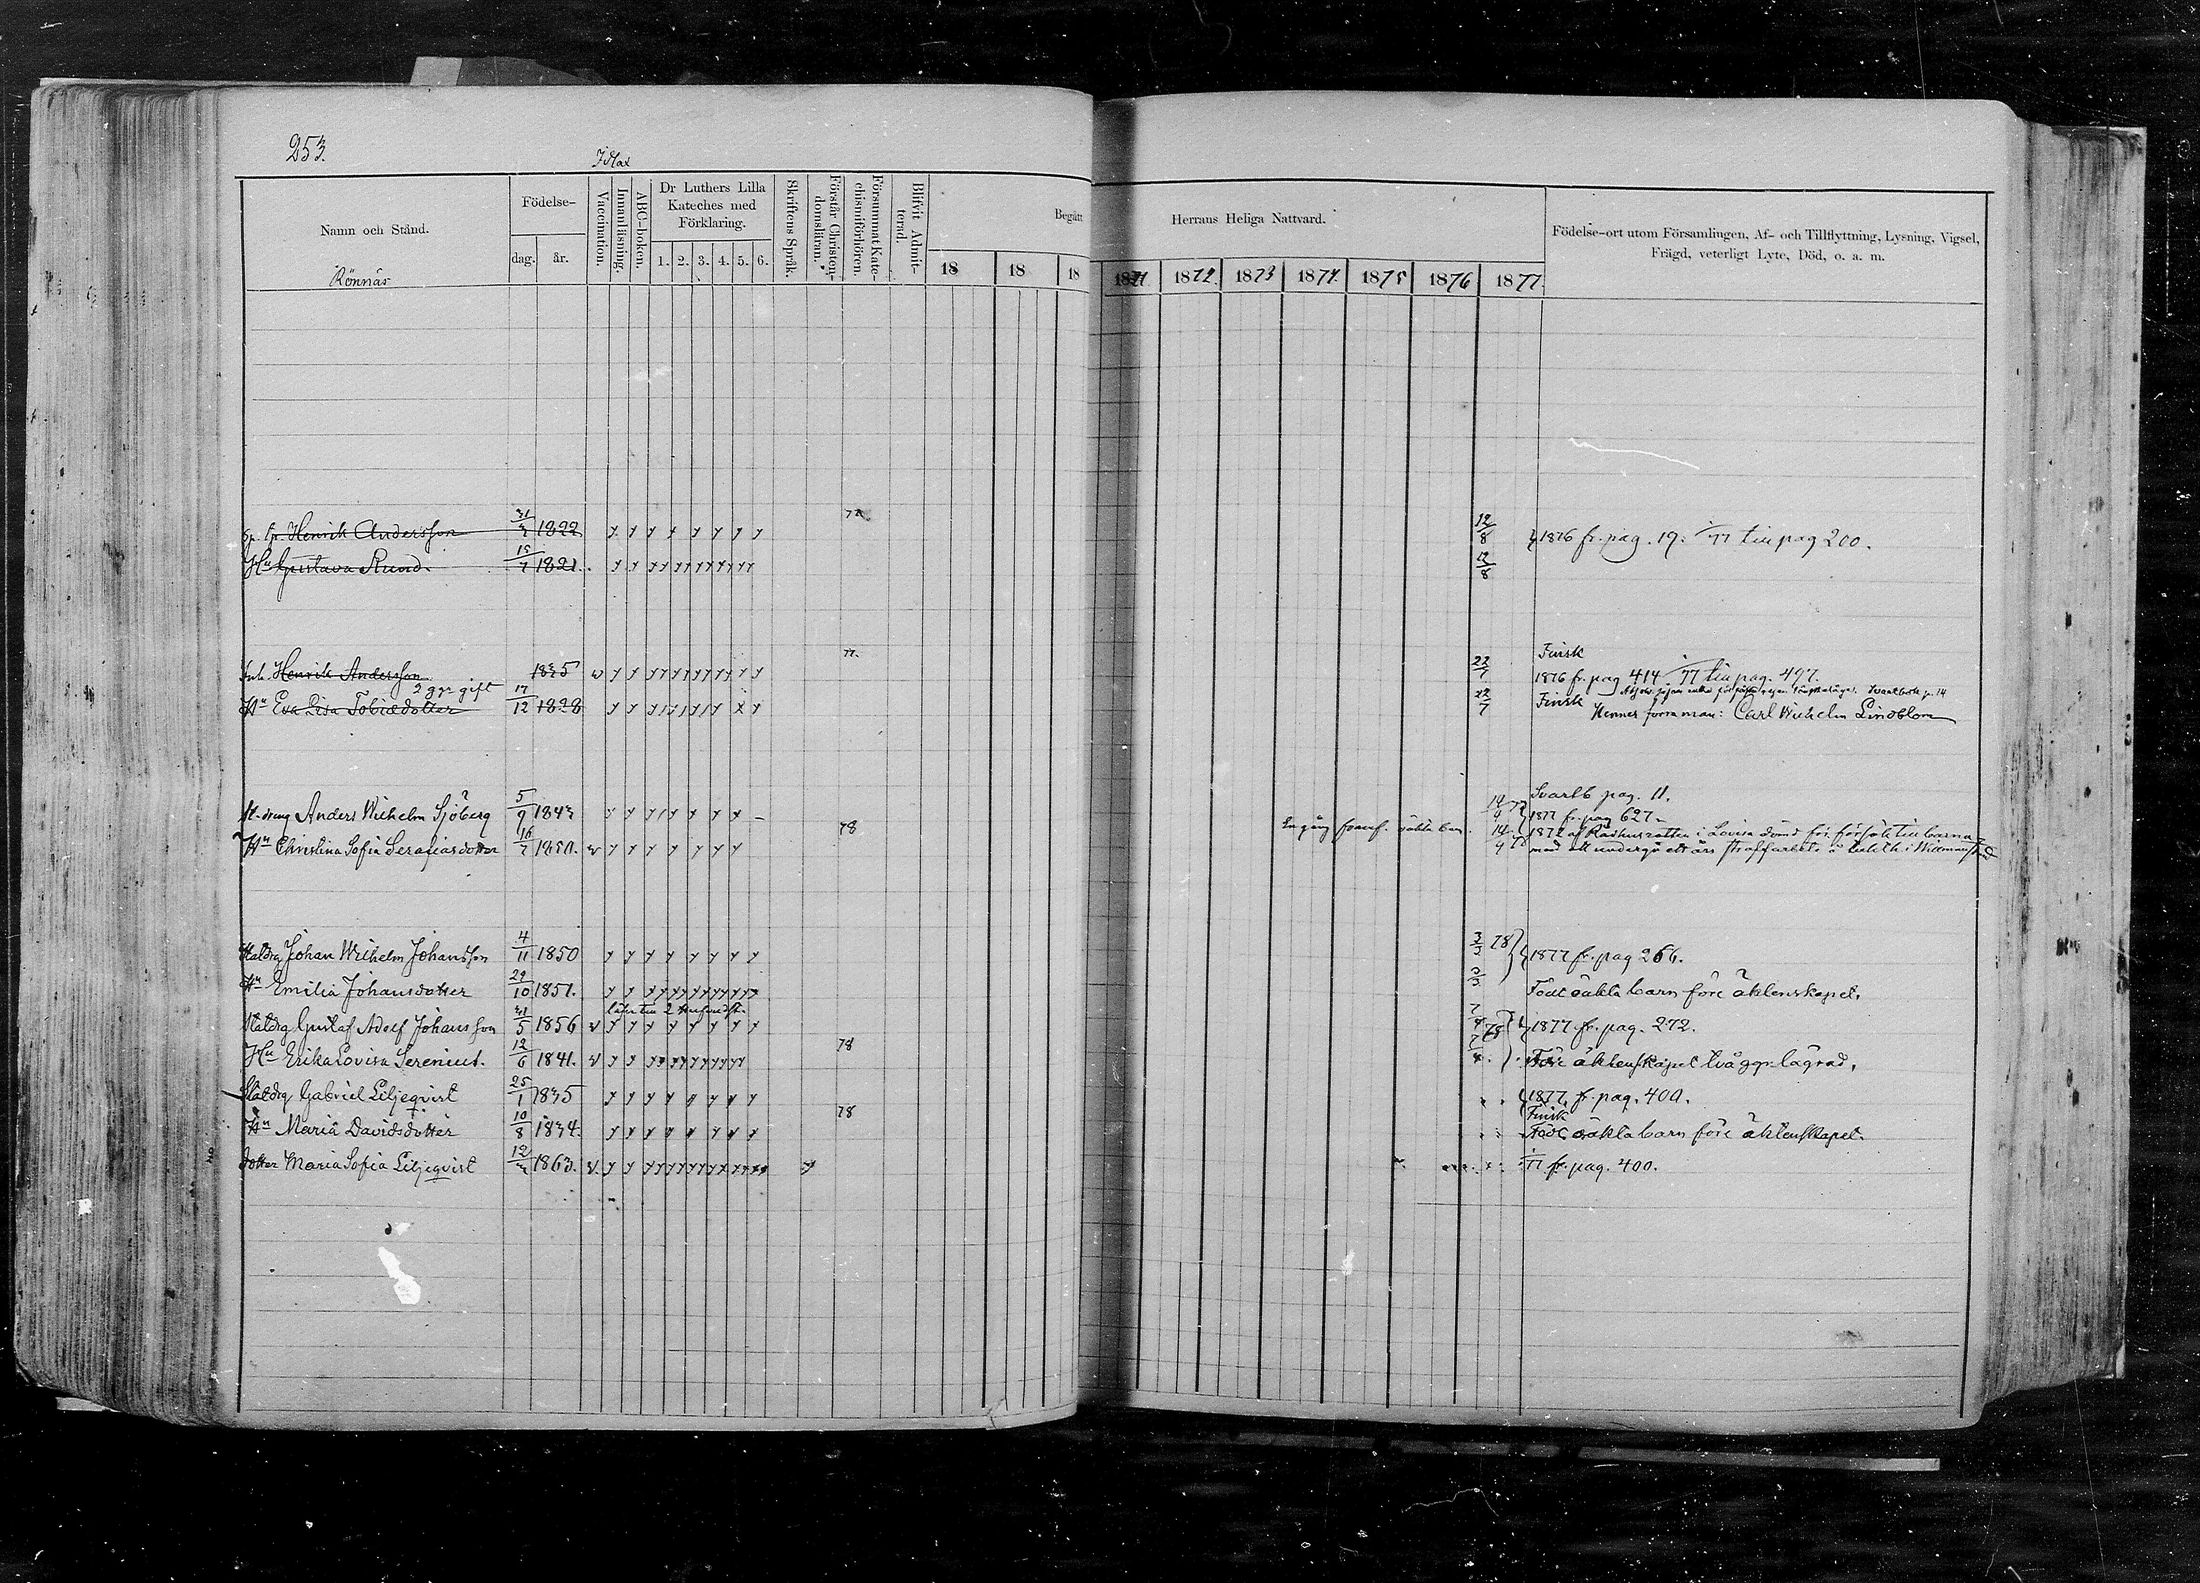 253.
Namn och Stånd.
Rönnäs
Födelse-
dag. år.
Vaccination.
Innanläsning.
ABC-boken.
Dr Luthers Lilla
Kateches med
Förklaring.
1. 2. 3. 4. 5. 6.
Skriftens Språk.
Förstår Christen-
domsläran.
Försummat Kate-
chismiförhören.
Blifvit Admit-
terad.
Begått Herrans Heliga Nattvard.
18 18 18 1871 1872. 1873 1874. 1875 1876 1877.
Födelse-ort utom Församlingen, Af- och Tillflyttning, Lysning, Vigsel,
Frägd, veterligt Lyte, Död, o. a. m.
Henrik Andersson 31/3 1822 77 12/8 1876 fr. pag. 19. 77 till pag 200.
Hu Gustava Sund. 15/7 1821. 12/8
Finsk
Inh. Henrik Andersson 1835 77. 22/7 1876 fr. pag 414 77 till pag. 497.
2 gr gift
Hu Eva Lisa Tobiædotter 17/12 1828 22/7 Finsk
Svartbok p. 14
Hennes förra man: Carl Wilhelm Lindblom
Svartb pag. 11.
St. dräng Anders Wilhelm Sjöberg 5/9 1843 14/9 77 1877 fr. pag 627
Hu Christina Sofia Serafiasdotter 16/7 1850. 78 En gång 14/9 1872 af Rådhusrätten i Lovisa dömd för försök till barna-
med att undergå ett års straffarbete å tukth. i Willmanstrand
Statdrg Johan Wilhelm Johansson 4/11 1850 3/3 78 1877 fr. pag 266.
Hu Emilia Johansdotter 29/10 1851. 3/3 Födt oäkta barn före äktenskapet.
Statdrg Gustaf Adolf Johansson 31/5 1856 78 1877 fr. pag. 272.
Hu Erika Lovisa Serenius. 12/6 1841. 78 Före äktenskapet två ggr lägrad.
Statdrg Gabriel Liljeqvist 25/1 1835 1877. fr. pag. 400.
Finsk
Hu Maria Davidsdotter 10/8 1834. 78 Födt oäkta barn före äktenskapet.
dotter Maria Sofia Liljeqvist 12/3 1863. 77 fr. pag. 400.